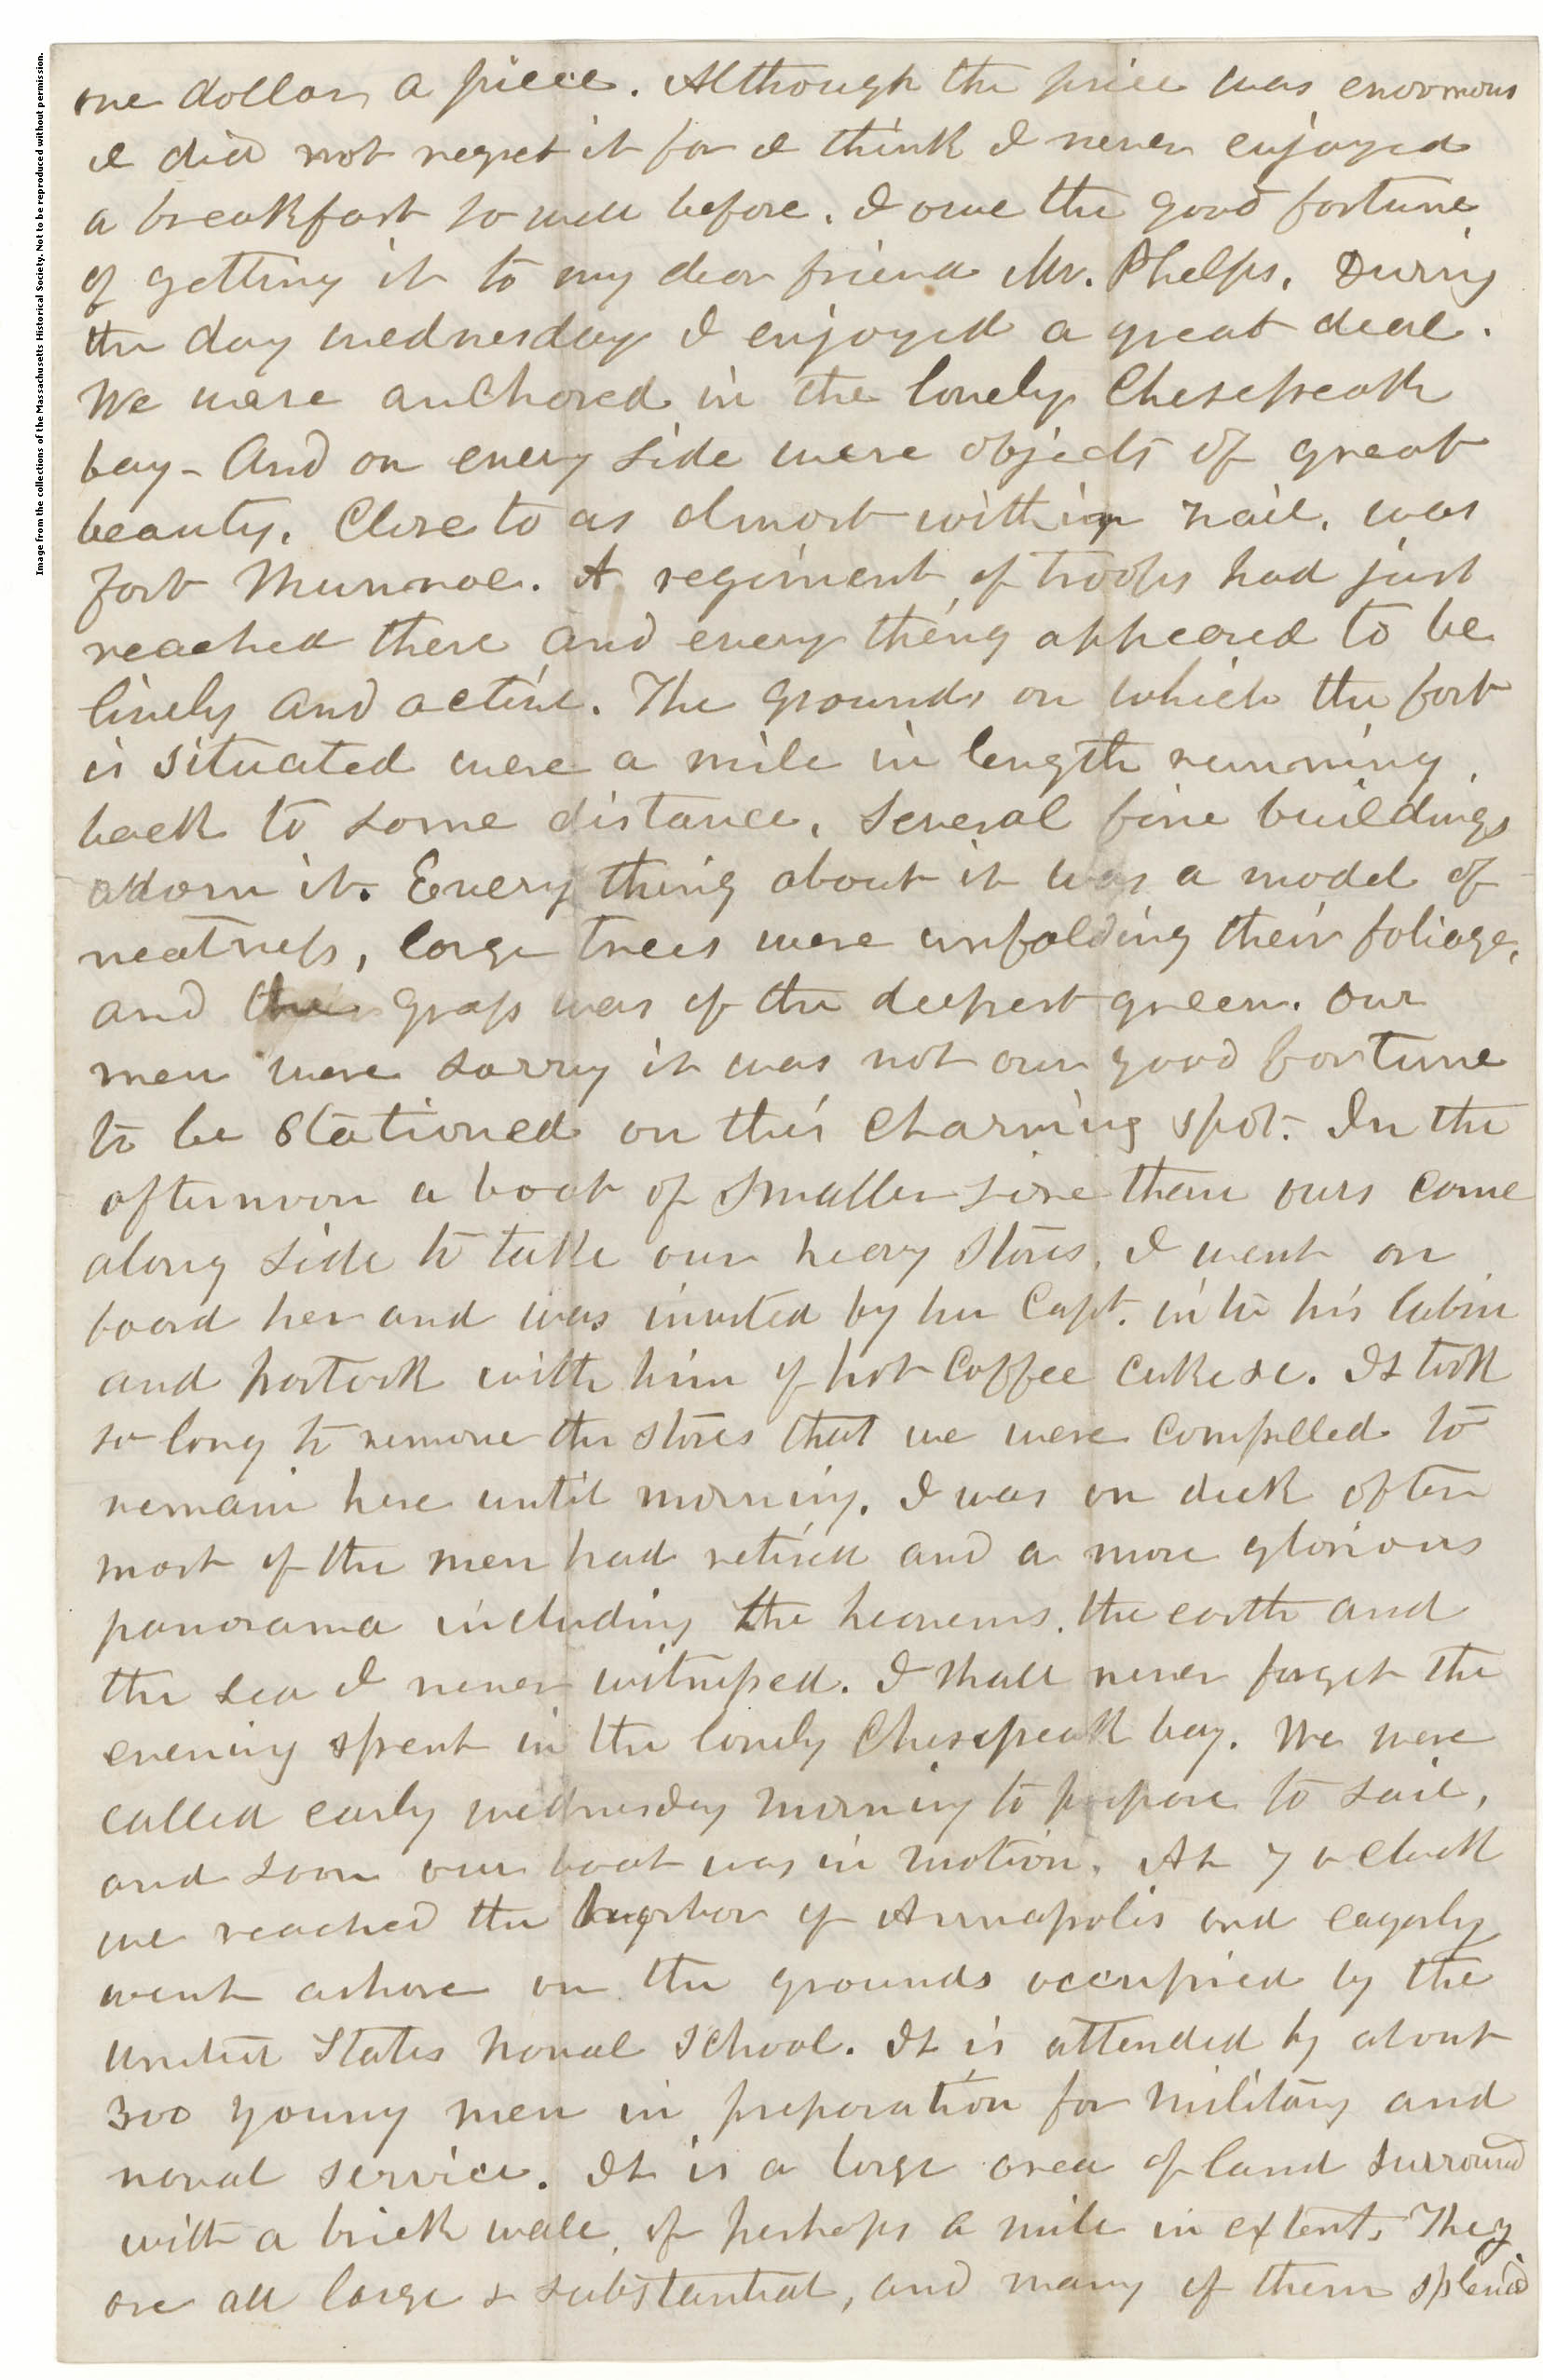 Image from the collections of the Massachusetts Historical Society. Not to be reproduced without permission.
one dollar a piece. Although the price was enormous
I did not regret it for I think I never enjoyed
a breakfast so well before. I owe the good fortune
of getting it to my dear friend Mr. Phelps. During
the day wednesday I enjoyed a great deal.
We were anchored in the lovely Chesepeak
bay - And on every side were objects of great
beauty. Close to us almost within hail, was
Fort Munroe. A regiment of troops had just
reached there and every thing appeared to be
lively and active. The grounds on which the fort
is situated were a mile in length running
back to some distance. Several fine buildings
adorn it. Every thing about it was a model of
neatness, large trees were unfolding their foliage,
and the grass was of the deepest green. Our
men were sorry it was not our good fortune
to be stationed on this charming spot. In the
afternoon a boat of smaller size than ours came
along side to take our heavy stores. I went on
board her and was invited by her Capt. into his Cabin
and partook with him of hot Coffee cake &c. It took
so long to remove the stores that we were compelled to
remain here until morning. I was on deck after
most of the men had retired and a more glorious
panorama including the heavens, the earth and
the sea I never witnessed. I shall never forget the
evening spent in the lovely Chesepeak bay. We were
called early wednesday morning to prepare to sail,
and soon our boat was in motion. At 7 o clock
we reached the harbor of Annapolis and eagerly
went ashore on the grounds occupied by the
United States Naval School. It is attended by about
300 young men in preparation for military and
naval service. It is a large area of land surround
with a brick wall, of perhaps a mile in extent. They
are all large & substantial, and many of them splendid